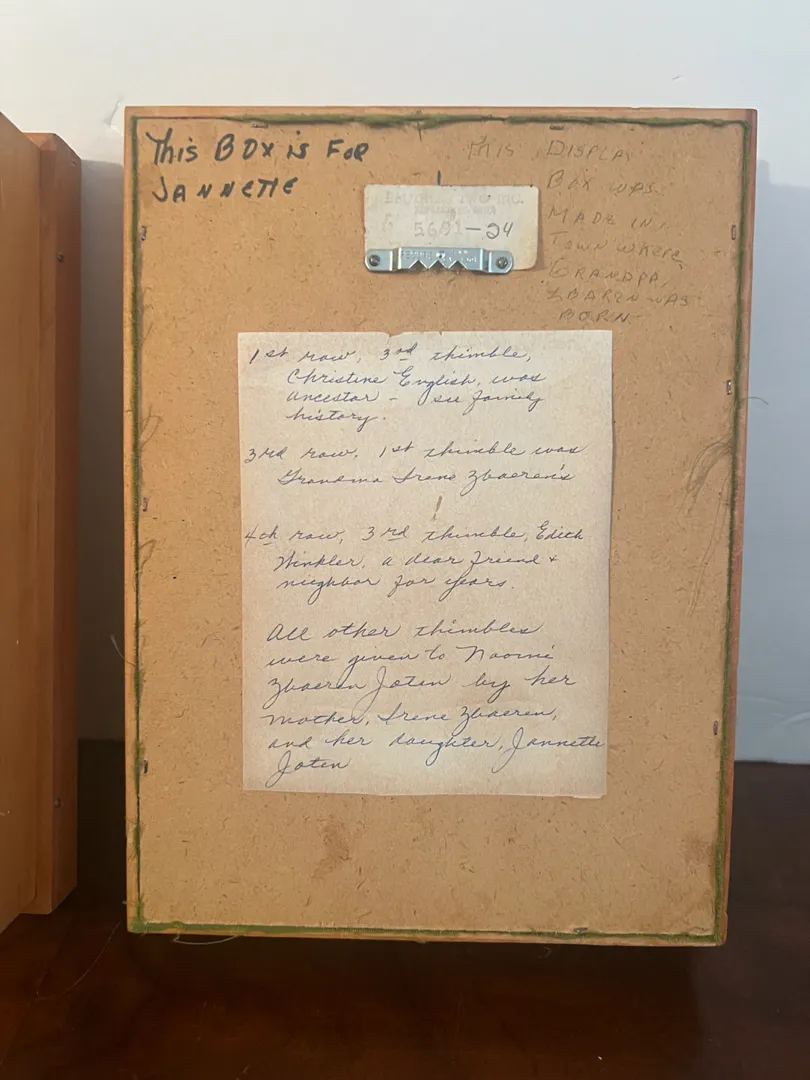 This BOX is FOR
JANNETTE
This DISPLAY
BOX WAS
MADE IN
TOWN WHERE
GRANDPA
ZBAREN WAS
BORN
5601-24
1st row, 3rd thimble,
Christine English, was
ancestor - see family
history.
3rd row, 1st thimble was
Grandma Irene Zbaeren's
!
4th row, 3rd thimble, Edith
Winkler, a dear friend +
neighbor for years.
All other thimbles
were given to Naomi
Zbaeren Joten by her
mother, Irene Zbaeren,
and her daughter, Jannette
Joten